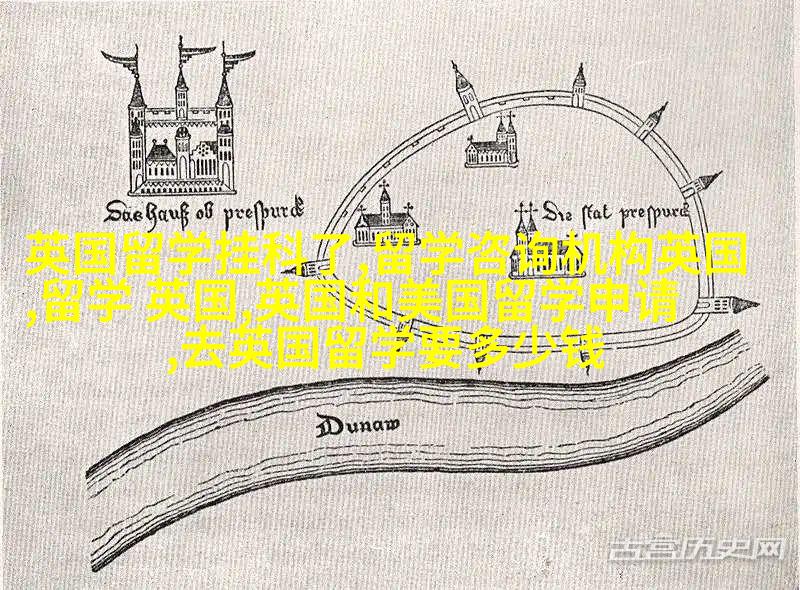 Das hauß ob prespurck
Die stat prespurck
英国留学挂科了,留学咨询机构英国
,留学 英国,英国和美国留学申请
,去英国留学要多少钱
Dunaw
古宫历史网